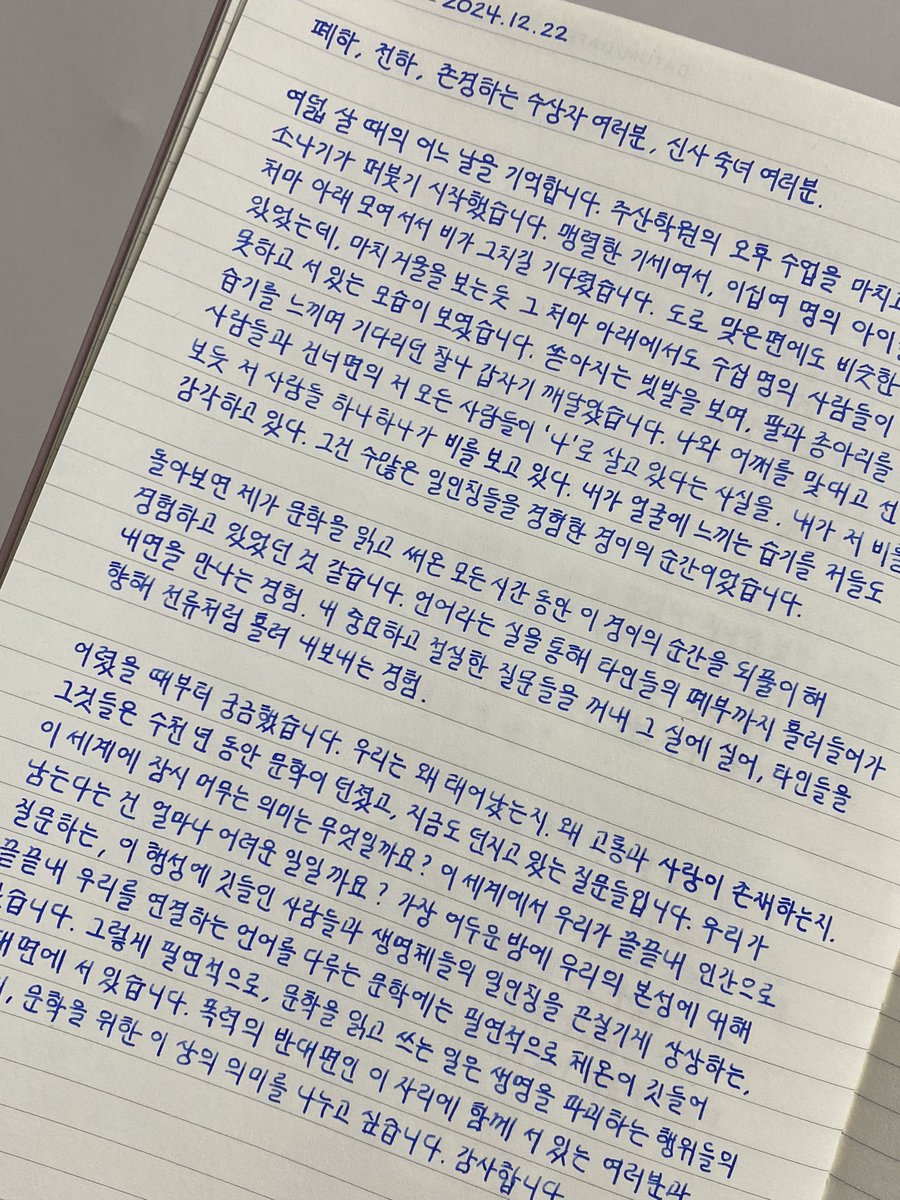 2024.12.22
폐하, 전하, 존경하는 수상자 여러분, 신사 숙녀 여러분.
여덟 살 때의 어느 날을 기억합니다. 주산학원의 오후 수업을 마치고
소나기가 퍼붓기 시작했습니다. 맹렬한 기세여서, 이십여 명의 아이
처마 아래 모여 서서 비가 그치길 기다렸습니다. 도로 맞은편에도 비슷한
있었는데, 마치 거울을 보는 듯 그 처마 아래에서도 수십 명의 사람들이
못하고 서 있는 모습이 보였습니다. 쏟아지는 빗발을 보며, 팔과 종아리를
습기를 느끼며 기다리던 찰나 갑자기 깨달았습니다. 나와 어깨를 맞대고 선
사람들과 건너편의 저 모든 사람들이 '나'로 살고 있다는 사실을. 내가 저 비를
보듯 저 사람들 하나하나가 비를 보고 있다. 내가 얼굴에 느끼는 습기를 저들도
감각하고 있다. 그건 수많은 일인칭들을 경험한 경이의 순간이었습니다.
돌아보면 제가 문학을 읽고 써온 모든 시간 동안 이 경이의 순간을 되풀이해
경험하고 있었던 것 같습니다. 언어라는 실을 통해 타인들의 폐부까지 흘러들어가
내면을 만나는 경험. 내 중요하고 절실한 질문들을 꺼내 그 실에 실어, 타인들을
향해 전류처럼 흘려 내보내는 경험.
어렸을 때부터 궁금했습니다. 우리는 왜 태어났는지. 왜 고통과 사랑이 존재하는지.
그것들은 수천 년 동안 문학이 던졌고, 지금도 던지고 있는 질문들입니다. 우리가
이 세계에 잠시 머무는 의미는 무엇일까요? 이 세계에서 우리가 끝끝내 인간으로
남는다는 건 얼마나 어려운 일일까요? 가장 어두운 밤에 우리의 본성에 대해
질문하는, 이 행성에 깃들인 사람들과 생명체들의 일인칭을 끈질기게 상상하는,
끝끝내 우리를 연결하는 언어를 다루는 문학에는 필연적으로 체온이 깃들어
습니다. 그렇게 필연적으로, 문학을 읽고 쓰는 일은 생명을 파괴하는 행위들의
대면에 서 있습니다. 폭력의 반대편인 이 자리에 함께 서 있는 여러분과
문학을 위한 이 상의 의미를 나누고 싶습니다. 감사합니다